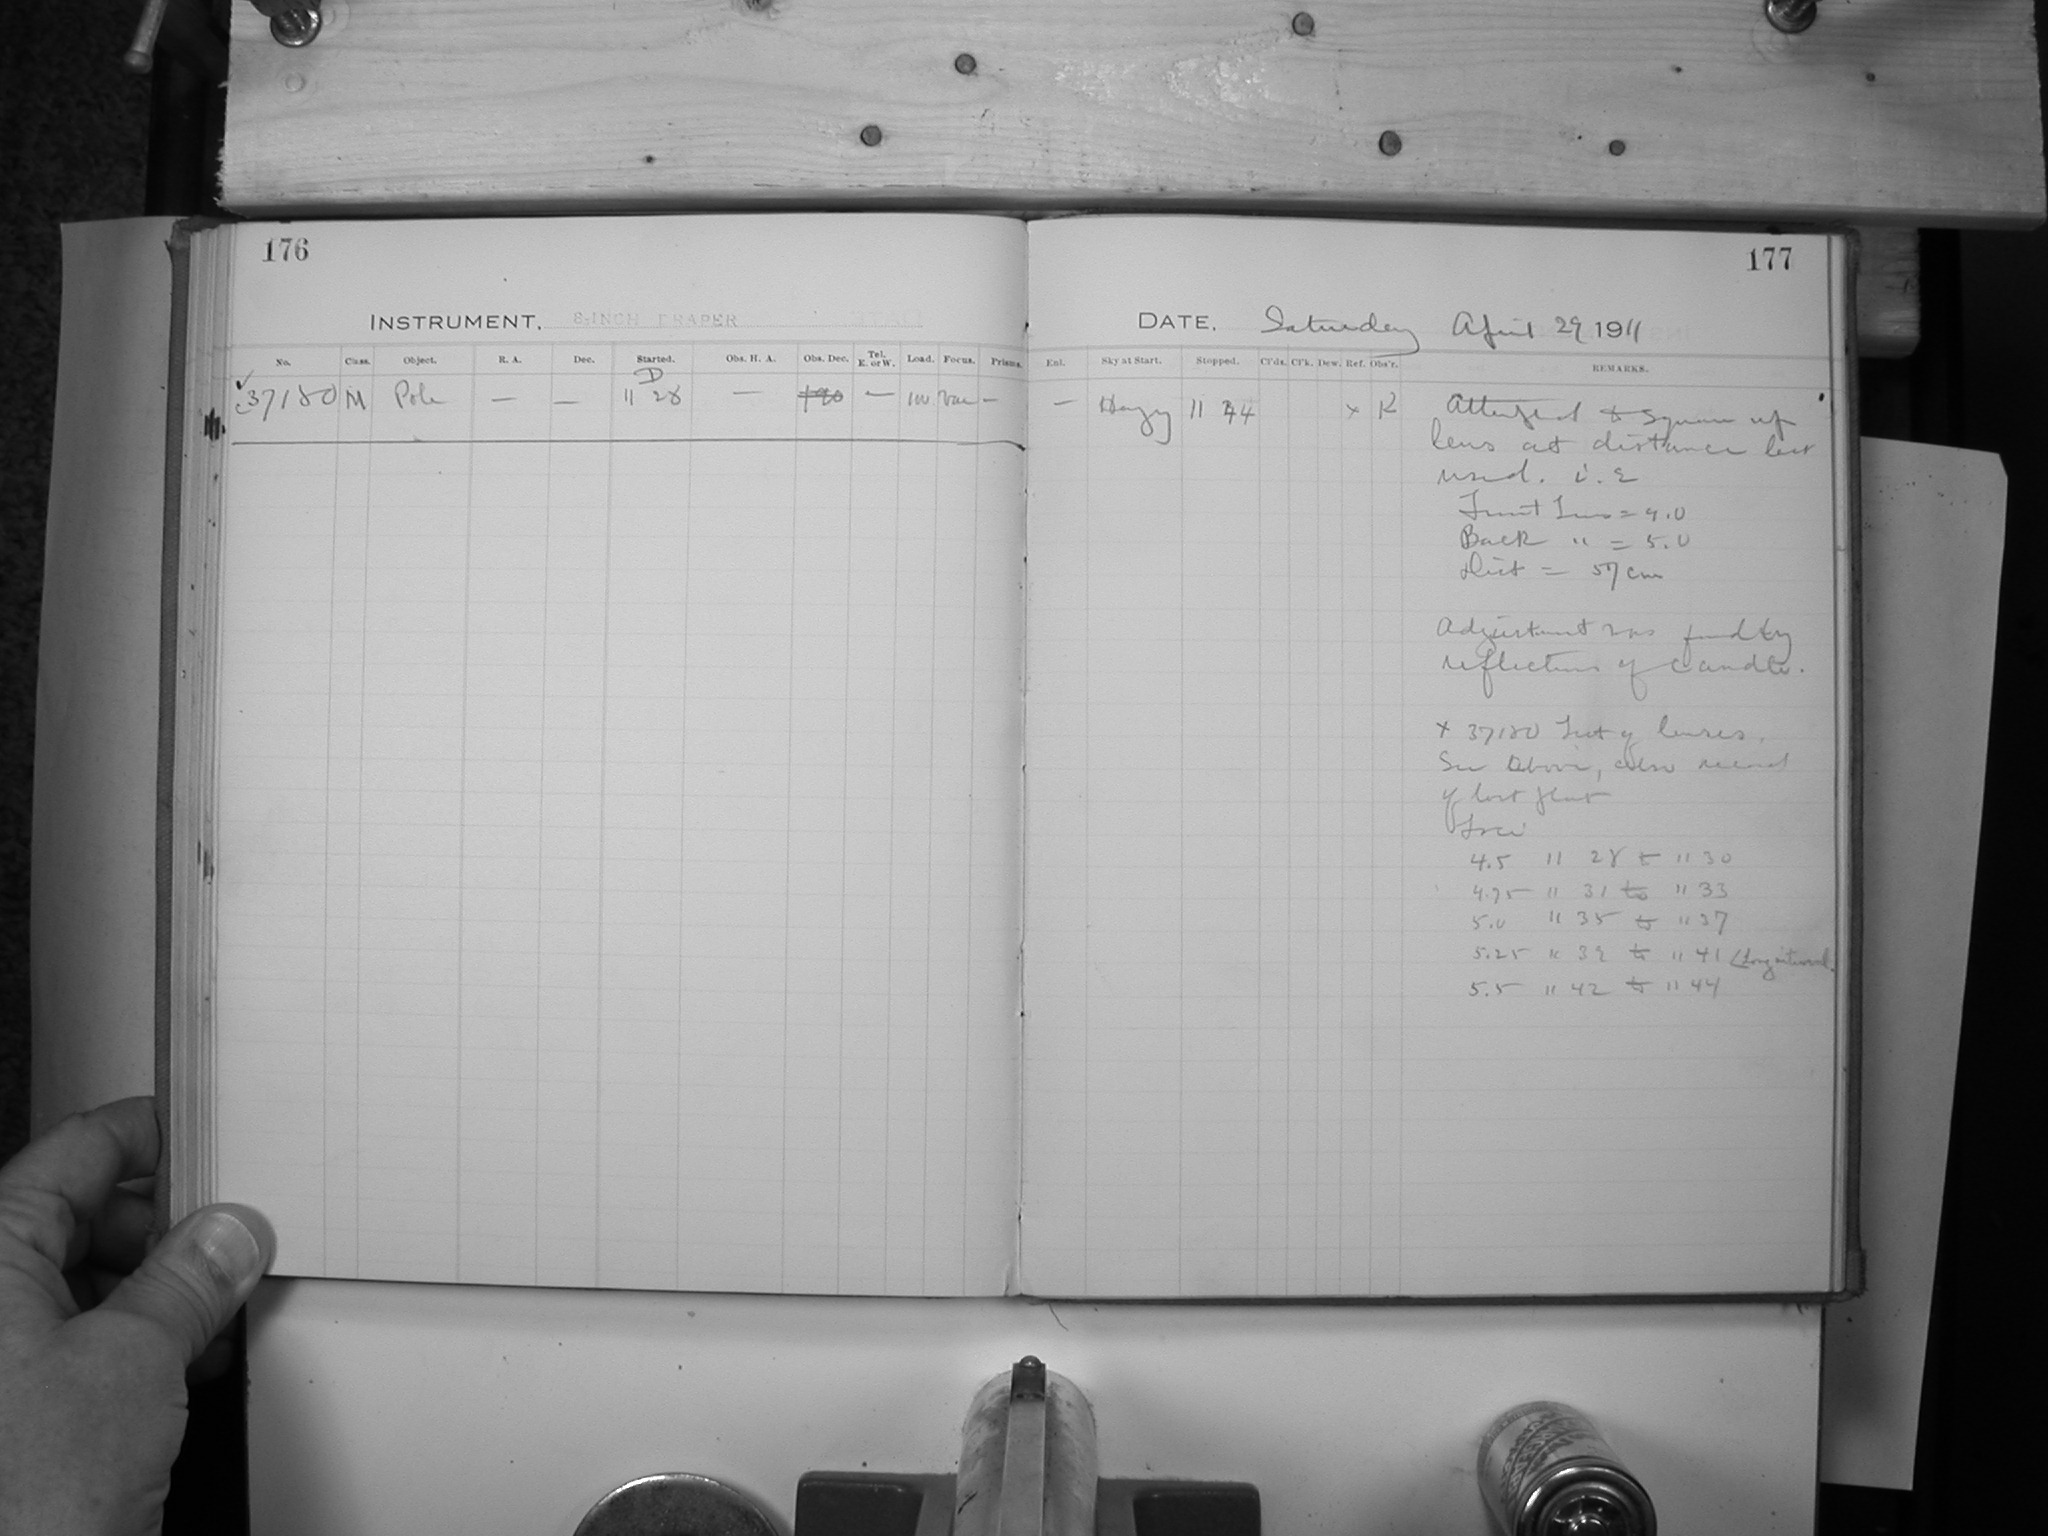 176
INSTRUMENT. 8-INCH DRAPER
No. Class. Object. R. A. Dec. Started. Obs. H. A. Obs. Dec. Tel. E. or W. Load. Focus. Prisms.
D
37180 M Pole — — 11 28 — — —
177
DATE. Saturday April 29 1911
Enl. Sky at Start. Stopped. Cl'ds. Cl'k. Dew. Ref. Obs'r. REMARKS.
— Hazy 11 44 x R Attempted to square up
lens at distance last
used. i.e
Front Lens = 4.0
Back " = 5.0
Dist = 57 cm
Adjustment was found by
reflections of candle.
x 37180 Test of lenses.
See above, also record
of last
Foci
4.5 11 28 to 11 30
4.75 11 31 to 11 33
5.0 11 35 to 11 37
5.25 11 39 to 11 41
5.5 11 42 to 11 44